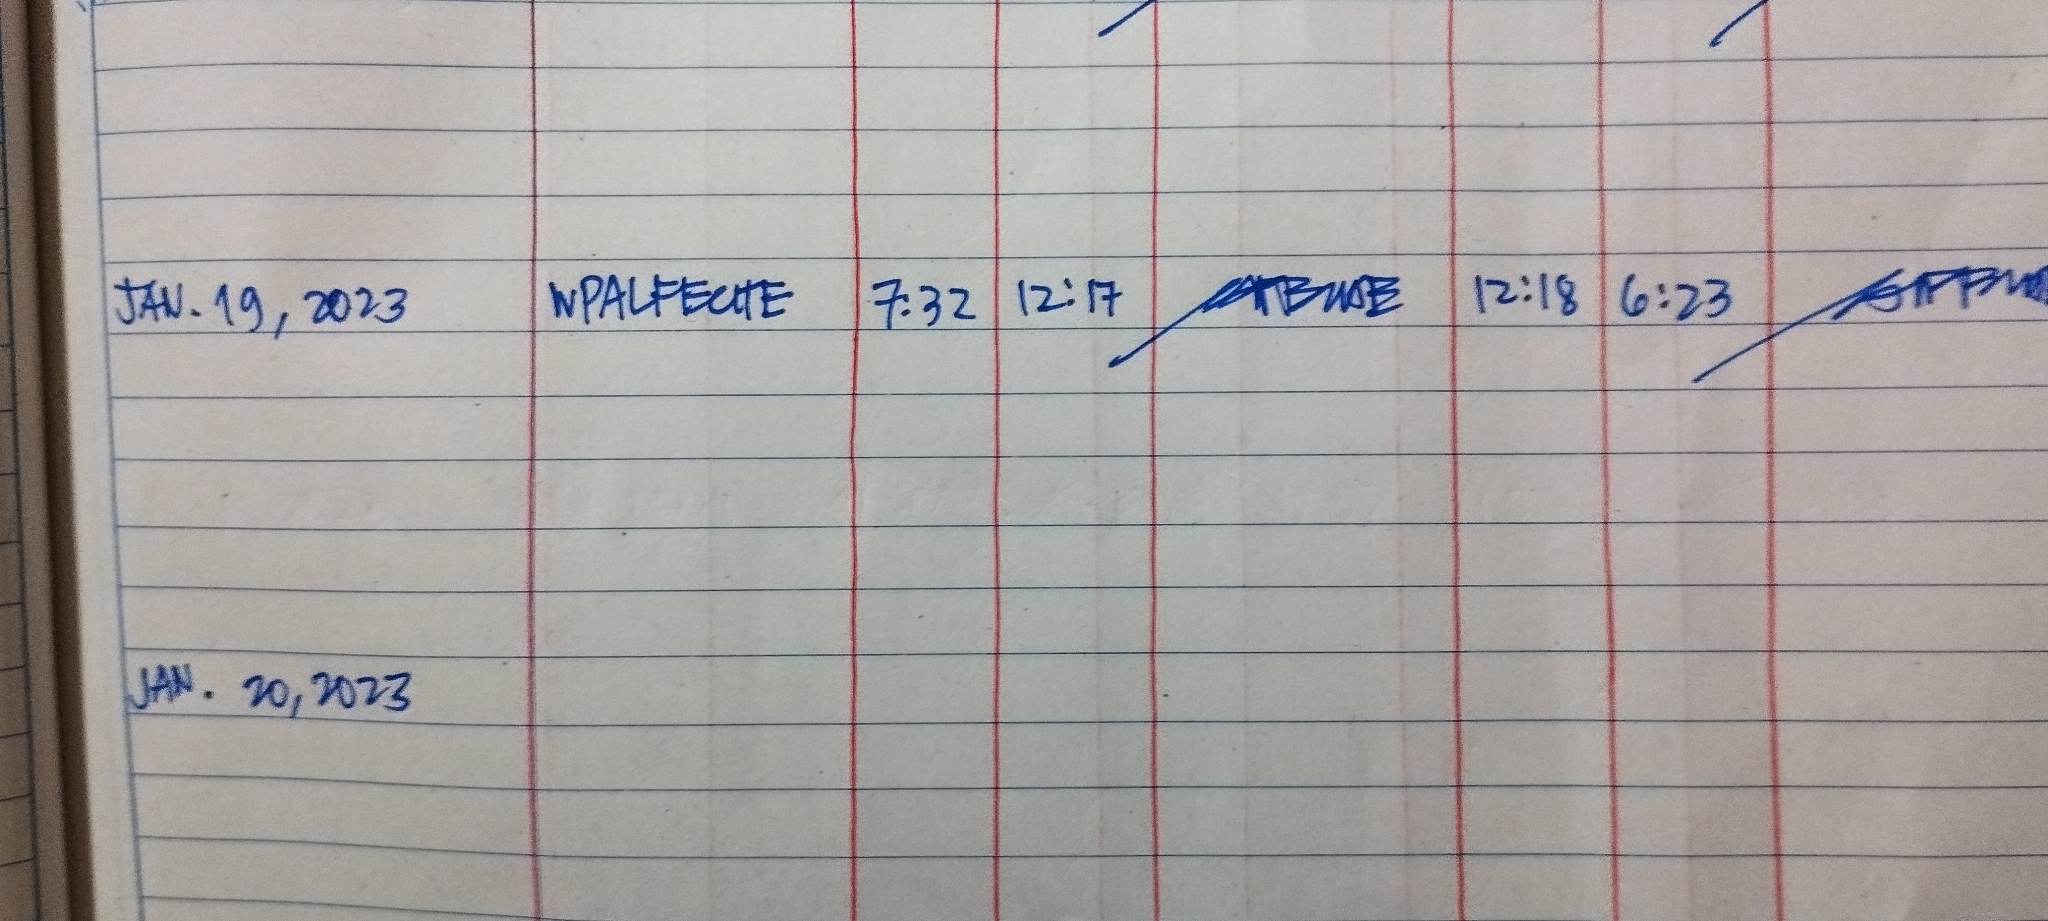 JAN. 19, 2023 WPALFECHE 7:32 12:17 12:18 6:23
JAN. 20, 2023